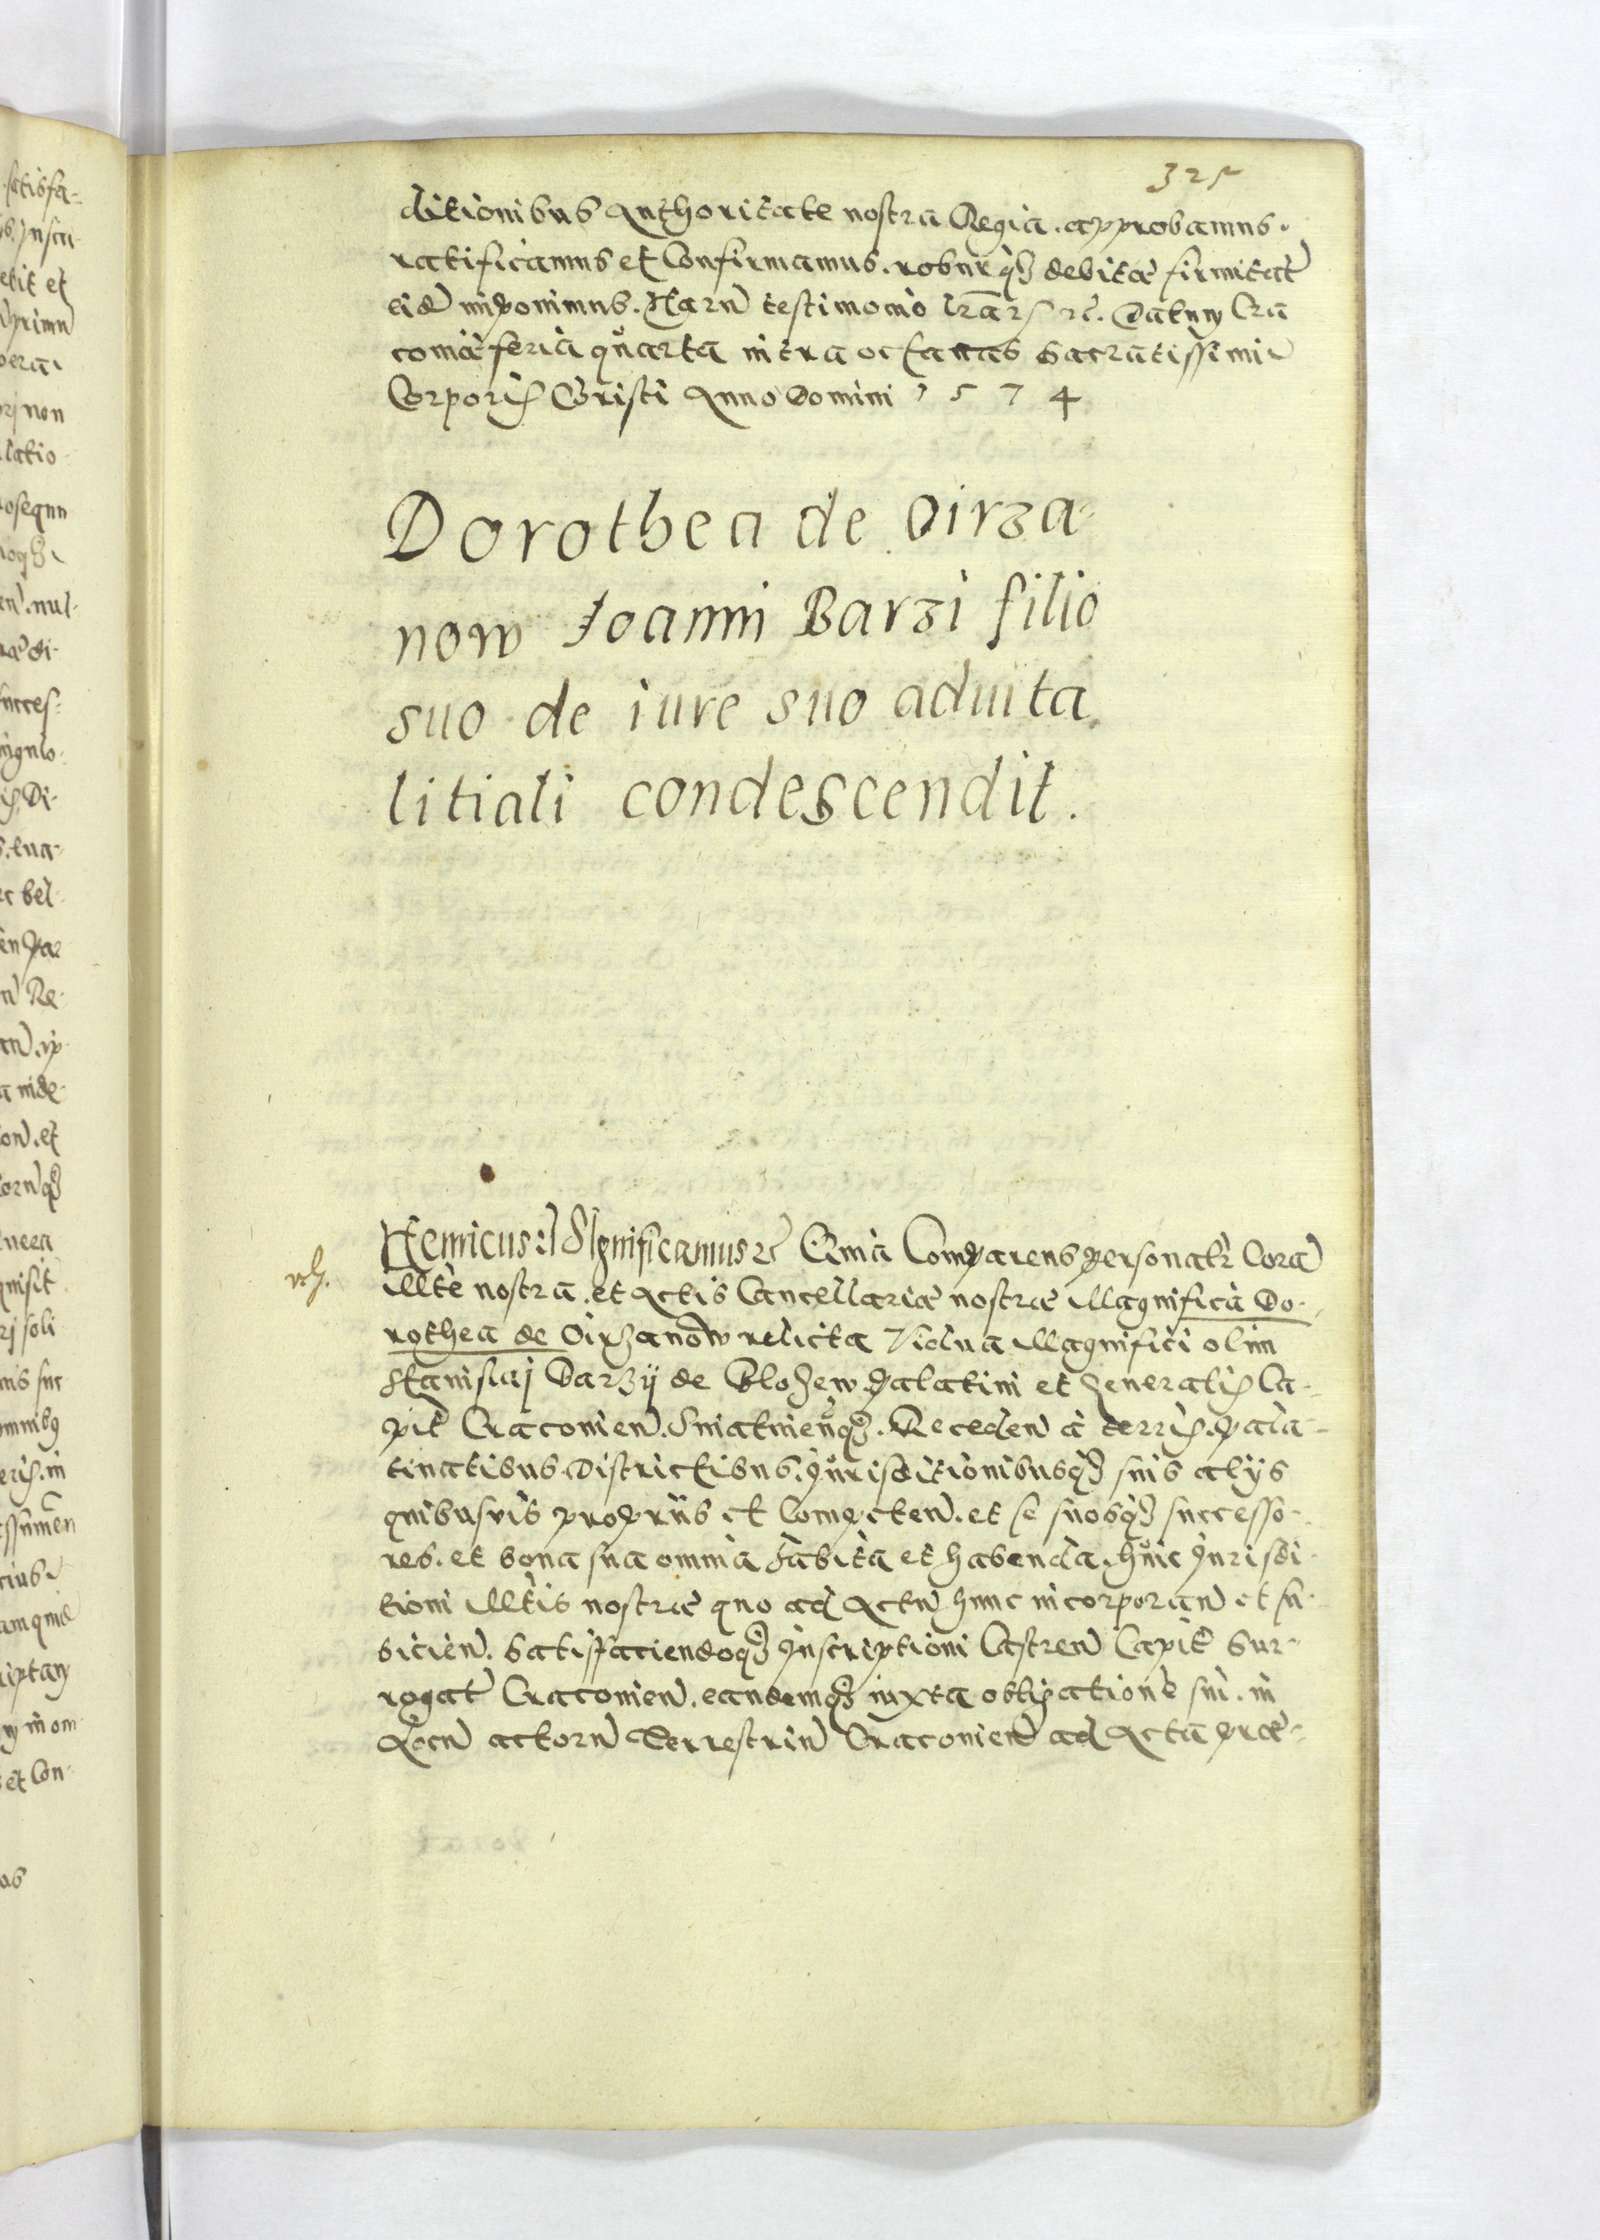 325
ditionibus Authoritate nostra Regia. approbamus.
ratificamus et Confirmamus. roburq3 debitae firmitat
eid imponimus. Harn testimonio lrar 2c. Datum Cra
coviae feria quarta intra octavas Sacratissimi
Corporis Christi Anno Domini 1574
Dorothea de Oirza-
now Joanni Barzi filio
suo de iure suo aduita
litiali condescendit.
Henricus 2c Significamus 2c Quia Comparens personatr Cora
Mte nostra. et Actis Cancellariae nostrae Magnifica Do-
rothea de Oirzanow relicta Vidua Magnifici olim
Stanislaj Barzÿ de Blozew Palatini et Generalis Ca-
pit Cracovien. Sniatinienq3. Receden à terris. pala-
tinatibus. Districtibus. Jurisditionibusq3 suis alÿs
quibusvis proprÿs et Competen. et se suosq3 successo-
res. et bona sua omnia habita et habenda. huic Jurisdi-
tioni Mtis nostrae quo ad Actu hunc incorporan et su-
bicien. Satisfaciendoq3 Inscriptioni Castren Capit Sur-
rogat Cracovien. eandemq3 iuxta obligatione sui. in
Locu actoru Terrestriu Cracovien ad Acta prae-